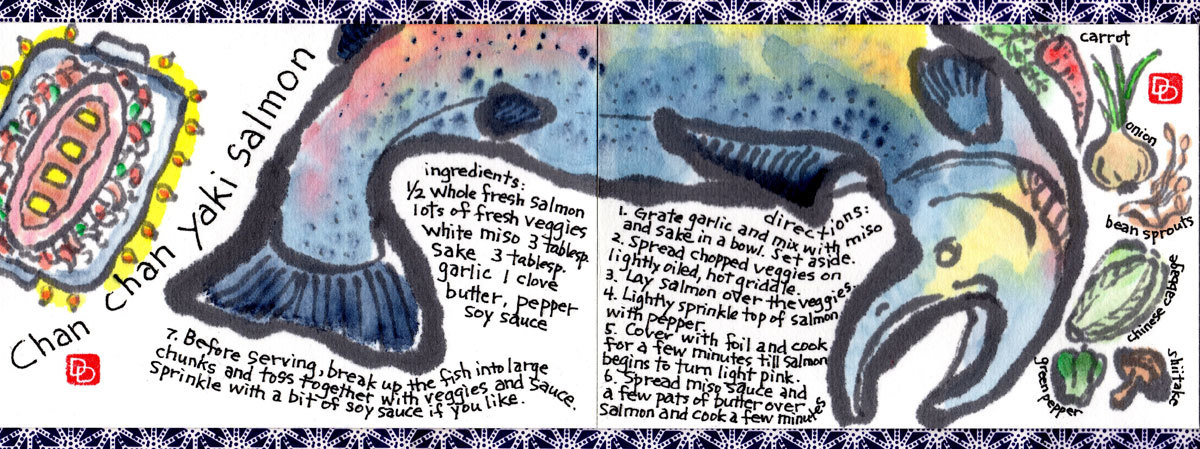 Chan Chan Yaki Salmon
ingredients:
1/2 whole fresh salmon
lots of fresh veggies
white miso 3 tablesp.
sake 3 tablesp.
garlic 1 clove
butter, pepper
soy sauce
directions:
1. Grate garlic and mix with miso
and sake in a bowl. Set aside.
2. Spread chopped veggies on
lightly oiled, hot griddle.
3. Lay salmon over the veggies.
4. Lightly sprinkle top of salmon
with pepper.
5. Cover with foil and cook
for a few minutes till salmon
begins to turn light pink.
6. Spread miso sauce and
a few pats of butter over
salmon and cook a few minutes
7. Before serving, break up the fish into large
chunks and toss together with veggies and sauce.
Sprinkle with a bit of soy sauce if you like.
carrot
onion
bean sprouts
chinese cabbage
green pepper
shiitake
DD
DD